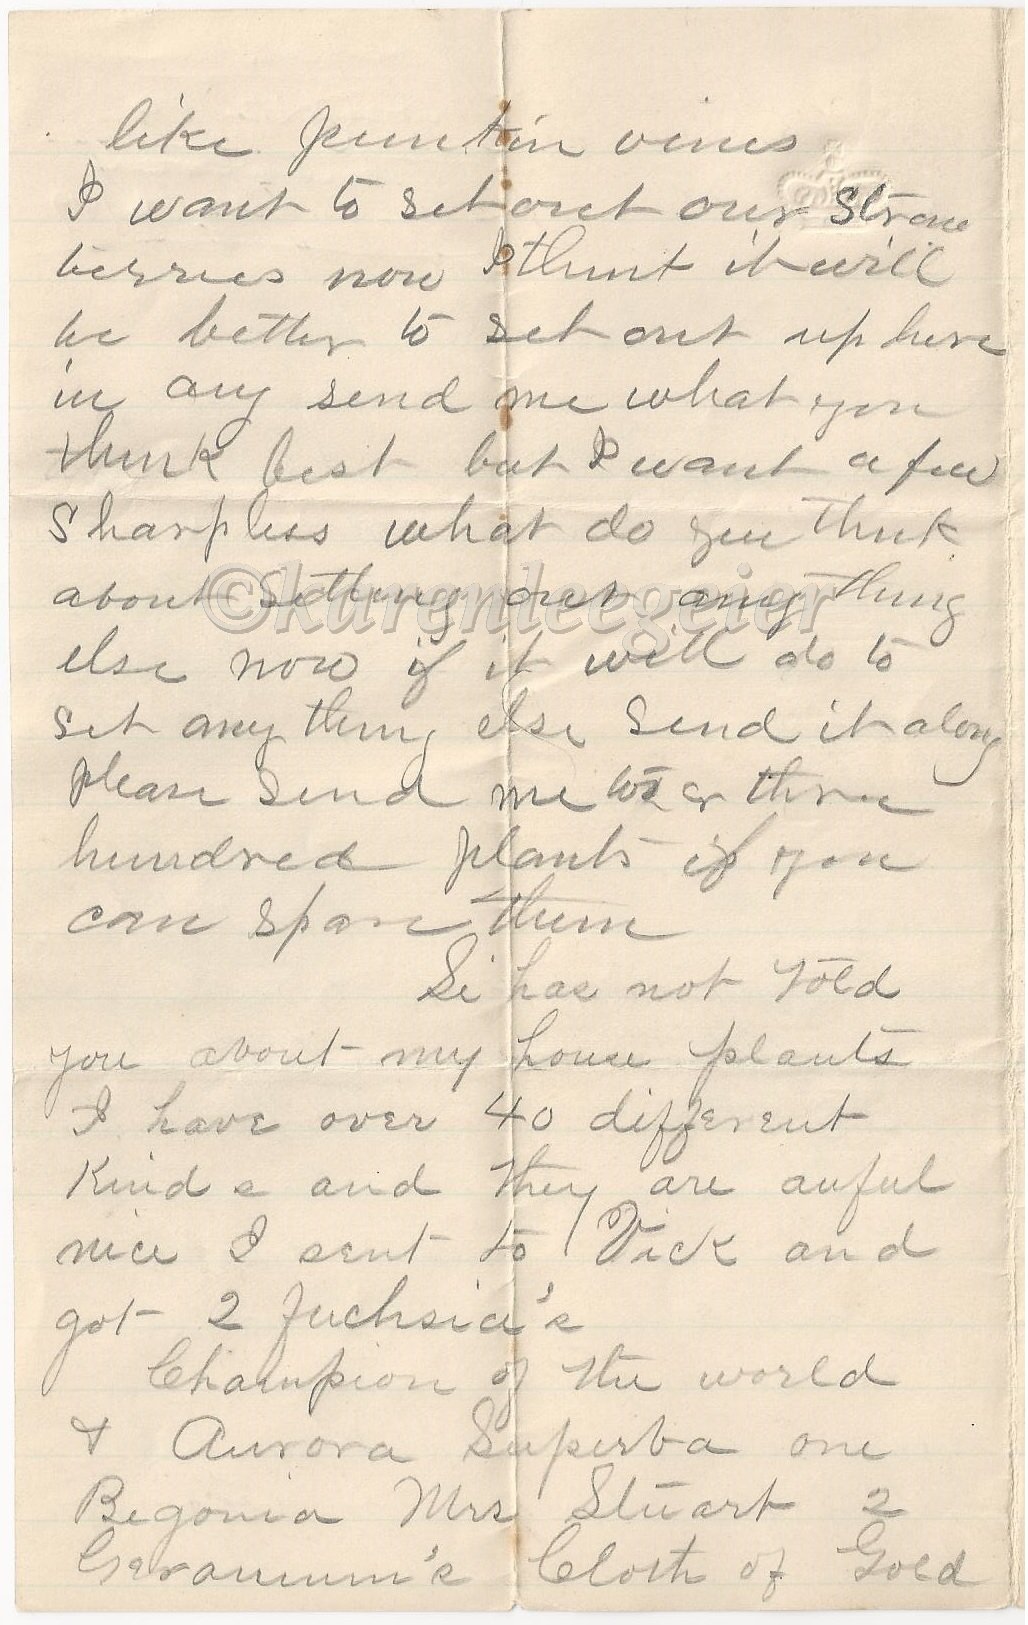 like punkin vines
I want to set out our straw
berries now I think it will
be better to set out up here
in any send me what you
think best but I want a few
Sharpless what do you think
about setting out anything
else now if it will do to
set anything else send it along
please send me two or three
hundred plants if you
can spare them
Si has not told
you about my house plants
I have over 40 different
kinds and they are awful
nice I sent to Vick and
got 2 Fuchsia's
Champion of the world
& Aurora Superba one
Begonia Mrs Stuart 2
Geranium's Cloth of Gold
©karenleegeier